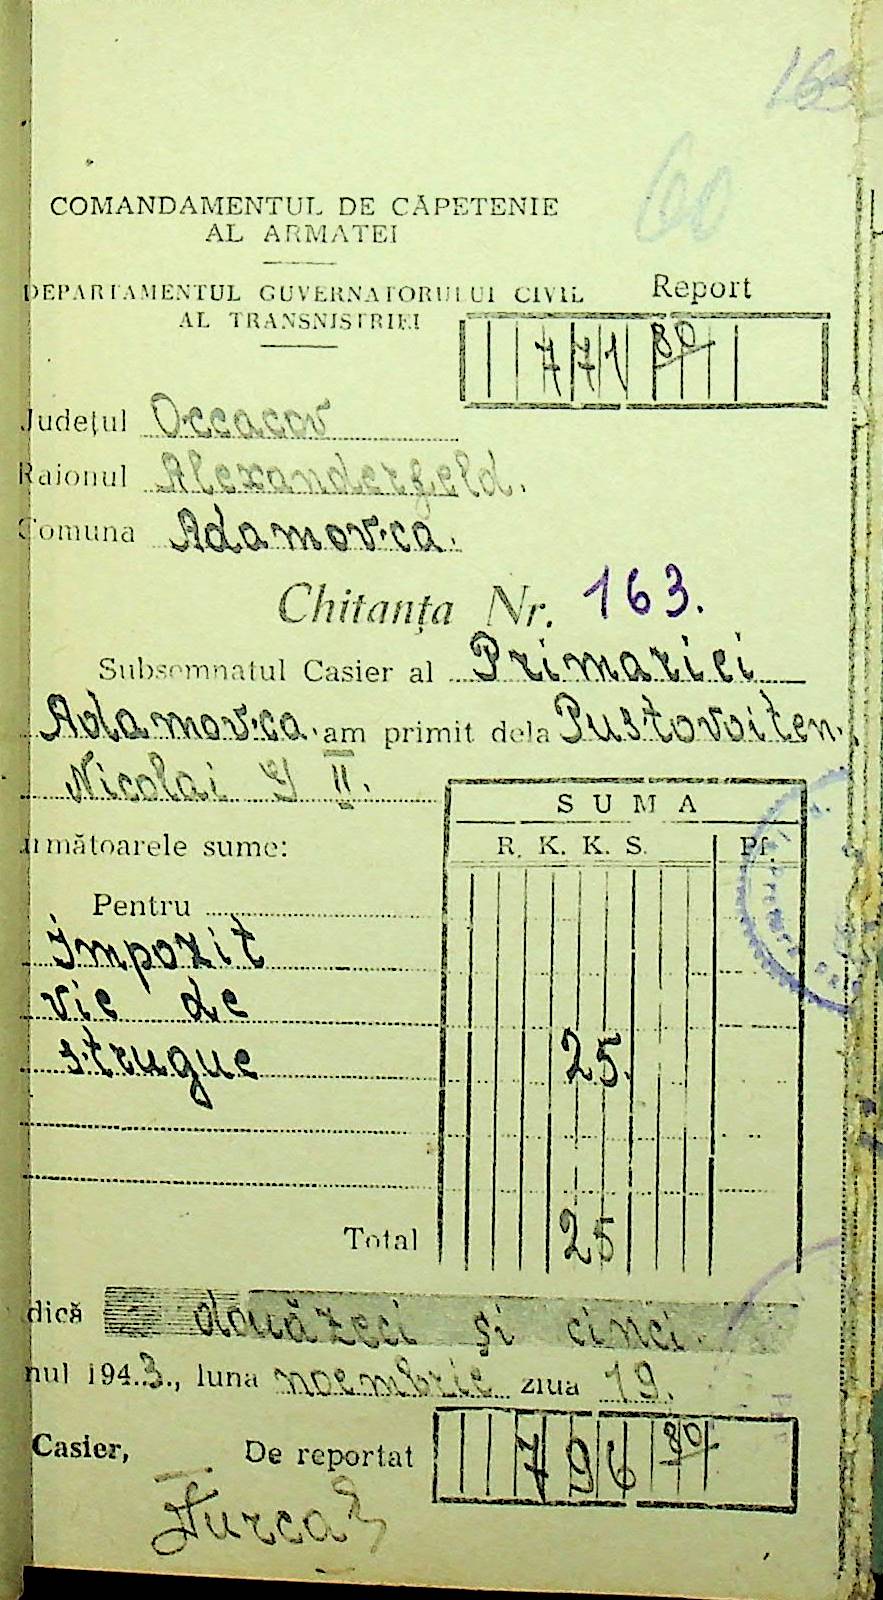 163
60
COMANDAMENTUL DE CĂPETENIE
AL ARMATEI
DEPARTAMENTUL GUVERNATORULUI CIVIL
AL TRANSNISTRIEI
Report
771 80
Județul Occacov
Raionul Alexanderfeld.
Comuna Adamovca.
Chitanța Nr. 163.
Subsemnatul Casier al Primariei
Adamovca. am primit dela Pustovoiten.
Nicolai G II.
următoarele sume:
SUMA
R. K. K. S. Pf.
Pentru
Impozit
vie de
strugue 25.
Total 25
dică douăzeci și cinci.
nul 1943., luna noembrie ziua 19.
Casier, De reportat 796 80